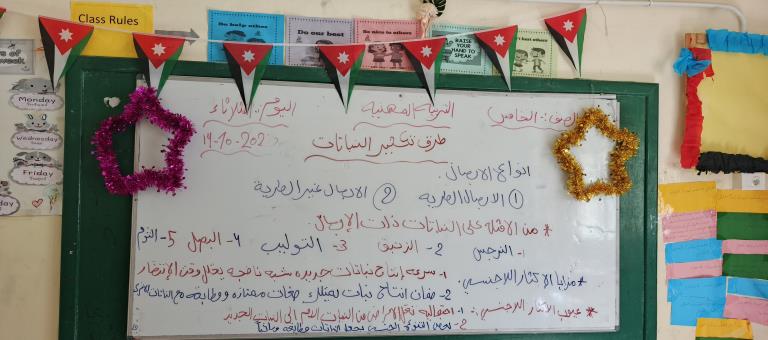 Class Rules
Do help others
Do our best
Do nice to others
RAISE YOUR HAND TO SPEAK
Monday
Wednesday
Friday
الصف: الخامس
التربية المهنية
اليوم: الثلاثاء
طرق تكثير النباتات
أنواع الأبصال
① الأبصال الطرية ② الأبصال غير الطرية
* من الأمثلة على النباتات ذات الأبصال
1- النرجس 2- الزنبق 3- التوليب 4- البصل 5- الثوم
* مزايا الإكثار اللاجنسي: 1- سرعة إنتاج نباتات جديدة شبه ناضجة يقلل وقت الانتظار
2- ضمان انتاج نبات يمتلك صفات ممتازة ومطابقة مع النباتات
* عيوب الإكثار اللاجنسي: 1- احتمالية نقل الأمراض من النبات الأم إلى النبات الجديد
2- التنوع الجنسي يجعل النباتات مطابقة